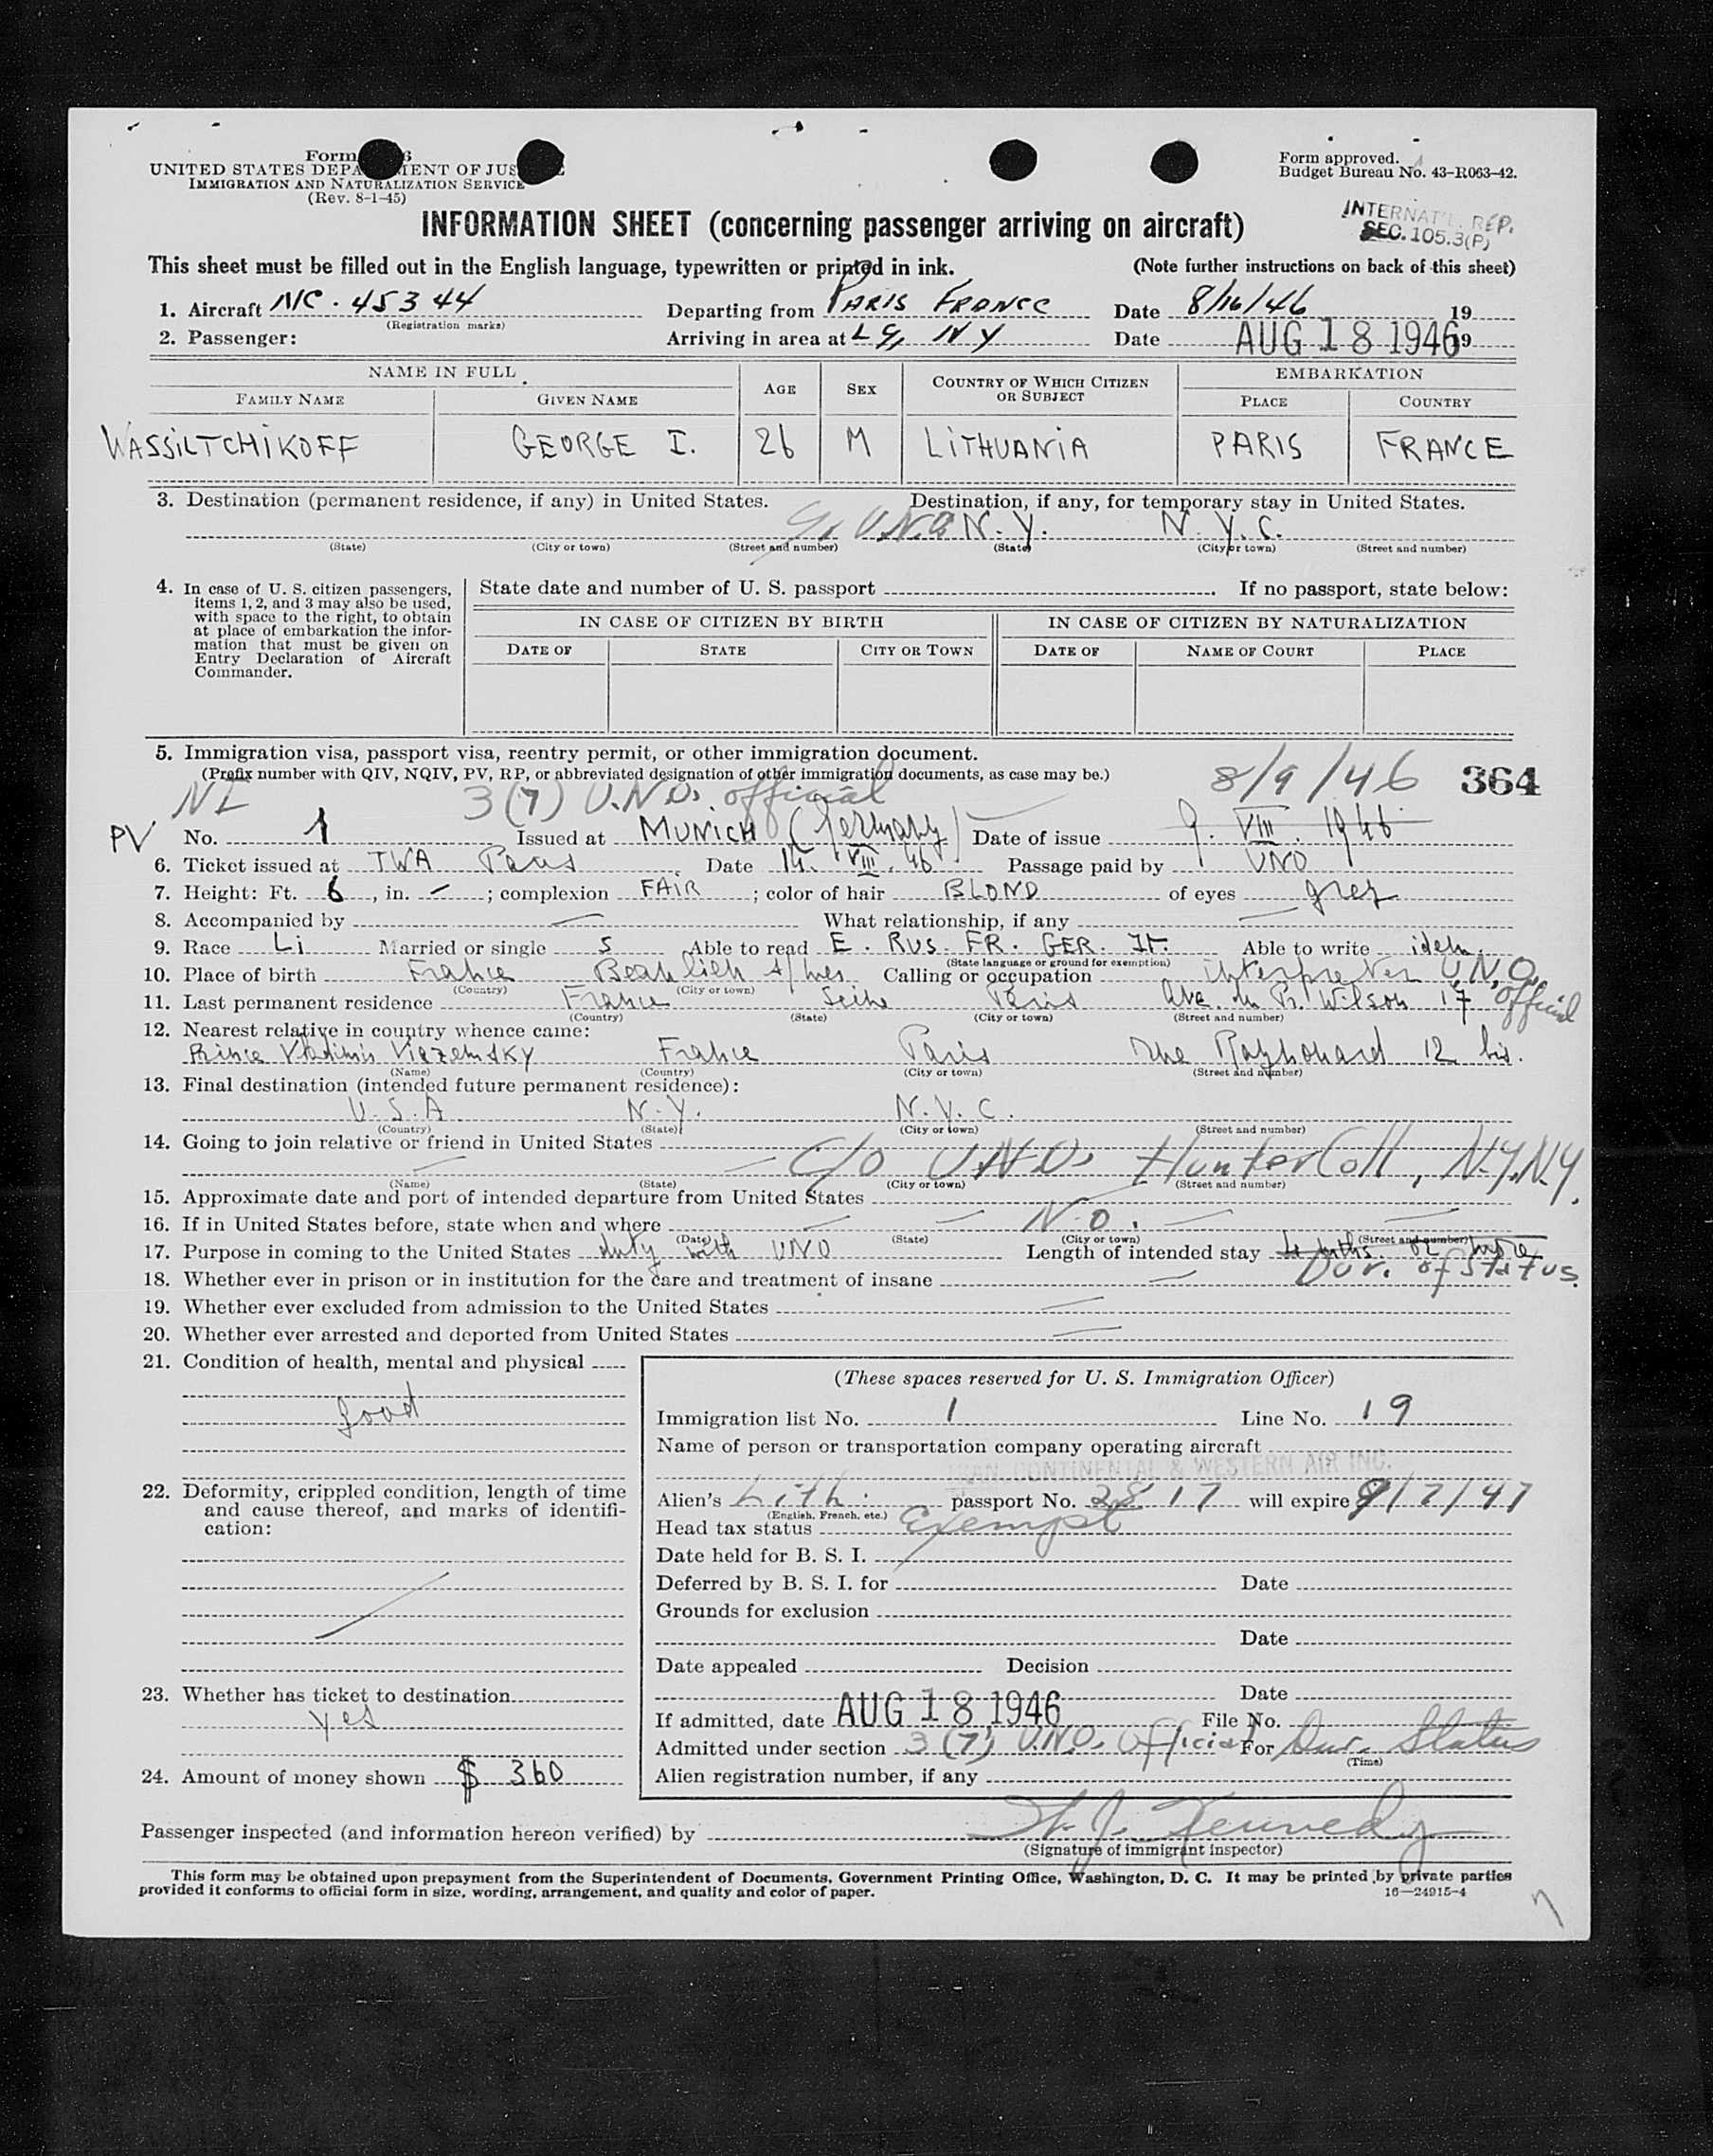 Form 6
UNITED STATES DEPARTMENT OF JUSTICE
IMMIGRATION AND NATURALIZATION SERVICE
(Rev. 8-1-45)
Form approved.
Budget Bureau No. 43-R063-42.
INTERNAT'L. REP.
SEC. 105.3(P)
INFORMATION SHEET (concerning passenger arriving on aircraft)
This sheet must be filled out in the English language, typewritten or printed in ink. (Note further instructions on back of this sheet)
1. Aircraft NC. 45344 Departing from PARIS FRANCE Date 8/16/46 19
(Registration marks)
2. Passenger: Arriving in area at LG, NY Date AUG 18 1946 19
NAME IN FULL AGE SEX COUNTRY OF WHICH CITIZEN OR SUBJECT EMBARKATION
FAMILY NAME GIVEN NAME PLACE COUNTRY
WASSILTCHIKOFF GEORGE I. 26 M LITHUANIA PARIS FRANCE
3. Destination (permanent residence, if any) in United States. Destination, if any, for temporary stay in United States.
U.N.O N.Y. N.Y.C.
(State) (City or town) (Street and number) (State) (City or town) (Street and number)
4. In case of U. S. citizen passengers, items 1, 2, and 3 may also be used, with space to the right, to obtain at place of embarkation the information that must be given on Entry Declaration of Aircraft Commander.
State date and number of U. S. passport . If no passport, state below:
IN CASE OF CITIZEN BY BIRTH IN CASE OF CITIZEN BY NATURALIZATION
DATE OF STATE CITY OR TOWN DATE OF NAME OF COURT PLACE
5. Immigration visa, passport visa, reentry permit, or other immigration document.
(Prefix number with QIV, NQIV, PV, RP, or abbreviated designation of other immigration documents, as case may be.) 8/9/46 364
NI 3(7) U.N.O. official
PV No. 1 Issued at MUNICH (Germany) Date of issue 9. VIII. 1946
6. Ticket issued at TWA Paris Date 14. VIII. 46 Passage paid by UNO
7. Height: Ft. 6, in. –; complexion FAIR; color of hair BLOND of eyes grey
8. Accompanied by — What relationship, if any —
9. Race Li Married or single S Able to read E. RUS. FR. GER. IT. Able to write idem.
(State language or ground for exemption)
10. Place of birth France s/mes Calling or occupation interpreter U.N.O. official
(Country) (City or town)
11. Last permanent residence France Seine Paris Ave. du Pr. Wilson 17
(Country) (State) (City or town) (Street and number)
12. Nearest relative in country whence came:
Prince Vladimir Viazemsky France Paris Rue Raynouard 12 bis.
(Name) (Country) (City or town) (Street and number)
13. Final destination (intended future permanent residence):
U.S.A N.Y. N.Y.C.
(Country) (State) (City or town) (Street and number)
14. Going to join relative or friend in United States
— — C/o U.N.O. Hunter Coll, N.Y.N.Y.
(Name) (State) (City or town) (Street and number)
15. Approximate date and port of intended departure from United States
16. If in United States before, state when and where — — No. — —
(Date) (State) (City or town) (Street and number)
17. Purpose in coming to the United States duty with UNO Length of intended stay 4 mths. or more
Dur. of Status.
18. Whether ever in prison or in institution for the care and treatment of insane —
19. Whether ever excluded from admission to the United States —
20. Whether ever arrested and deported from United States —
21. Condition of health, mental and physical
good
22. Deformity, crippled condition, length of time and cause thereof, and marks of identification:
23. Whether has ticket to destination
yes
24. Amount of money shown $ 360
(These spaces reserved for U. S. Immigration Officer)
Immigration list No. 1 Line No. 19
Name of person or transportation company operating aircraft
TRAN. CONTINENTAL & WESTERN AIR INC.
Alien's Lith. passport No. 2817 will expire 9/7/47
(English, French, etc.)
Head tax status Exempt
Date held for B. S. I.
Deferred by B. S. I. for Date
Grounds for exclusion
Date
Date appealed Decision
Date
If admitted, date AUG 18 1946 File No.
Admitted under section 3(7) U.N.O. Official For Dur. Status
(Time)
Alien registration number, if any
Passenger inspected (and information hereon verified) by Kennedy
(Signature of immigrant inspector)
This form may be obtained upon prepayment from the Superintendent of Documents, Government Printing Office, Washington, D. C. It may be printed by private parties
provided it conforms to official form in size, wording, arrangement, and quality and color of paper. 16—24915-4